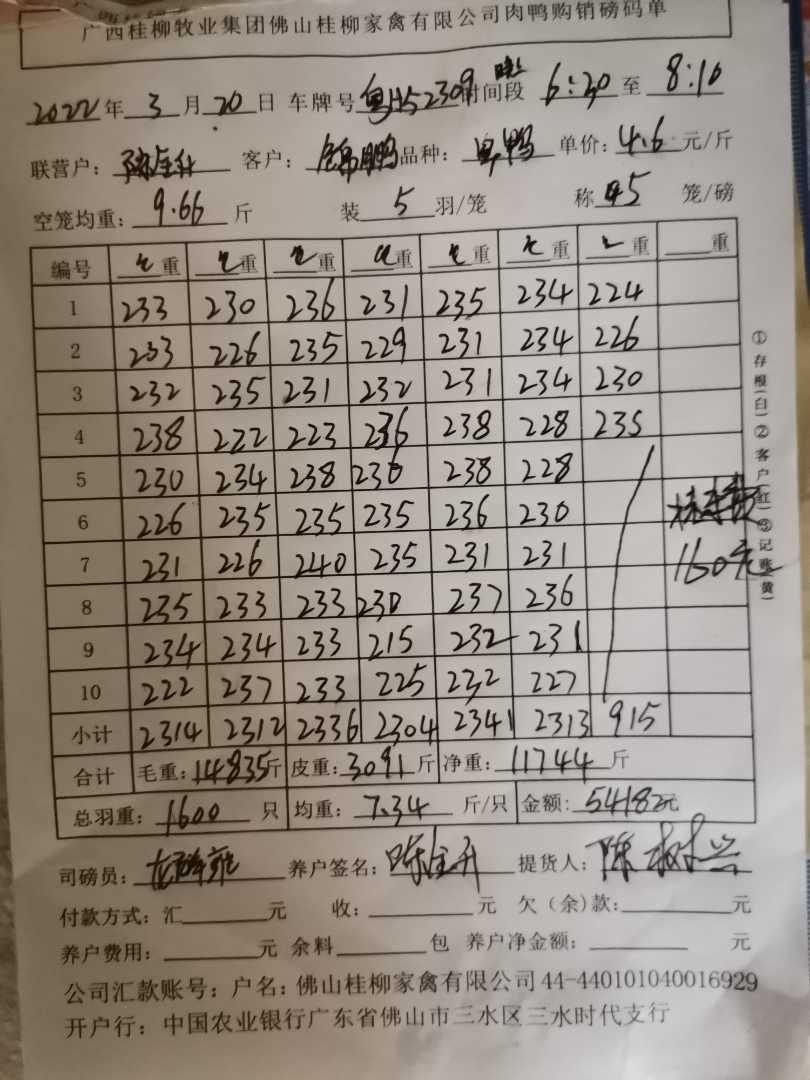 广西桂柳牧业集团佛山桂柳家禽有限公司肉鸭购销磅码单
2022年3月20日 车牌号 粤H52309 时间段 晚上 6:30 至 8:10
联营户: 陈金升 客户: 锦鹏 品种: 鸭 单价: 4.6 元/斤
空笼均重: 9.66 斤 装 5 羽/笼 称 45 笼/磅
编号 毛重 毛重 毛重 毛重 毛重 毛重 重 重
1 233 230 236 231 235 234 224
2 233 226 235 229 231 234 226
3 232 235 231 232 231 234 230
4 238 222 223 236 238 228 235
5 230 234 238 236 238 228
6 226 235 235 235 236 230
7 231 226 240 235 231 231
160元
8 235 233 233 230 237 236
9 234 234 233 215 232 231
10 222 237 233 225 232 227
小计 2314 2312 2336 2304 2341 2313 915
合计 毛重: 14835斤 皮重: 3091斤 净重: 11744 斤
总羽重: 1600 只 均重: 7.34 斤/只 金额: 54182元
司磅员: 养户签名: 陈金升 提货人: 陈树兴
付款方式: 汇 元 收: 元 欠(余)款: 元
养户费用: 元 余料 包 养户净金额: 元
公司汇款账号: 户名: 佛山桂柳家禽有限公司 44-440101040016929
开户行: 中国农业银行广东省佛山市三水区三水时代支行
①存根(白)②客户(红)③记账(黄)